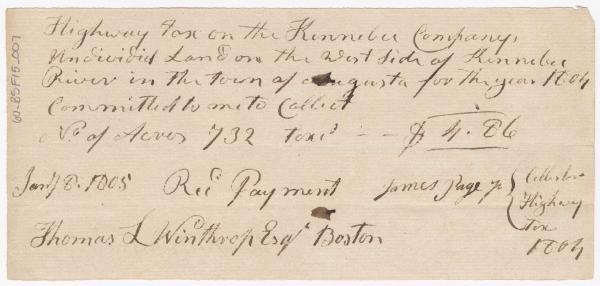 Highway tax on the Kennebec Company,
Undividid Land on the west side of Kennebec
River in the town of Augusta for the year 1804
Committed to me to Collect
No of Acres 732 taxd - - $ 4.86
Jany 8. 1805 Recd Payment James Page Jr
Collector
Highway
Tax
1804
Thomas L Winthrop Esqr Boston
60-B5F15_007